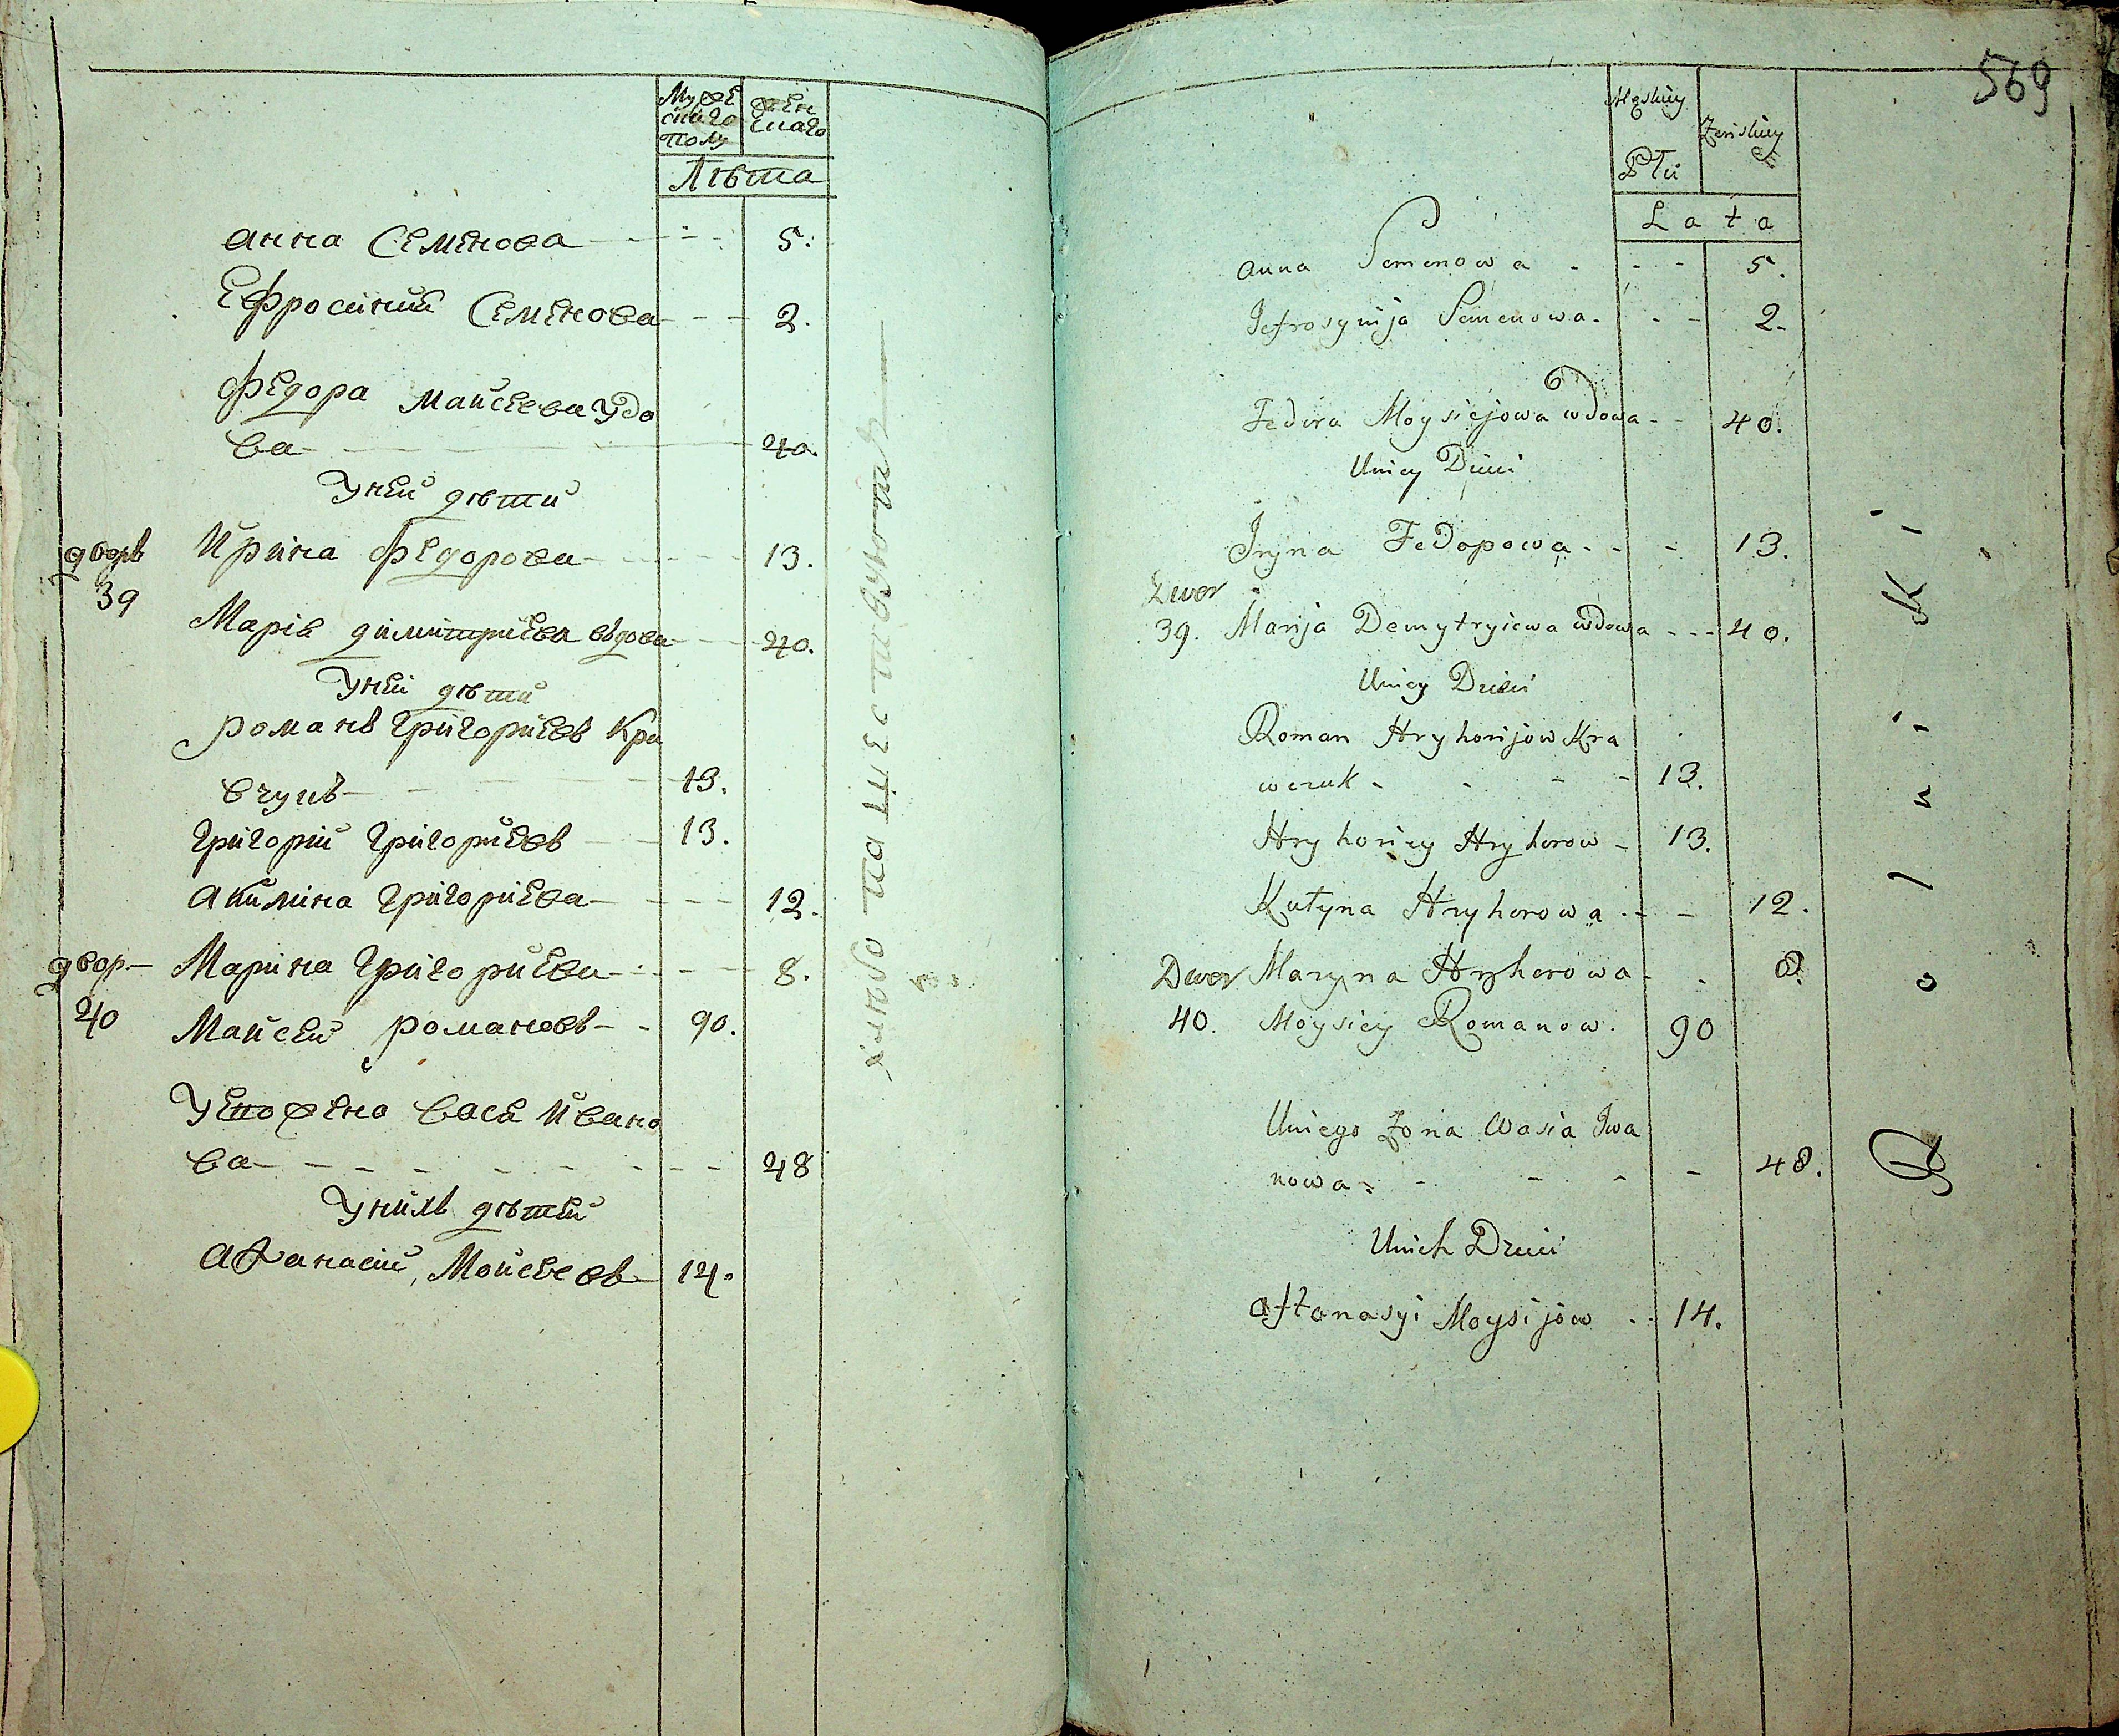 Муже
скаго
полу
жен
скаго
Лѣта
Анна Семенова - - - 5.
Ефросиния Семенова - - - 2.
Федора Майсеева удо
ва - - - 40.
У ней дѣти
Ирина Федорова - - - 13.
дворъ
39
Мария Димитриева вдова - - 40.
У ней дѣти
Романъ Григориевъ Кра
вчукъ - - - 13.
Григорий Григориевъ - - 13.
Акилина Григориева - - - 12.
двор -
40
Марина Григориева - - - 8.
Майсей Романовъ - - 90.
У его жена Вася Ивано
ва - - - 48
У нихъ дѣтей
Афанасий Мойсеевъ - 14.
569
Męskiey
Płci
Żeńskiey
Lata
Anna Semenowa - - - 5.
Jefrosynija Semenowa - - - 2.
Fedora Moysiejowa wdowa - - 40.
U niey Dzieci
Iryna Fedopowa - - - 13.
Dwor
39. Marija Demytryiewa wdowa - - - 40.
U niey Dzieci
Roman Hryhorijow Kra
wczuk - - - - 13.
Hryhoriey Hryhorow - 13.
Kułyna Hryhorowa - - - 12.
Dwor Maryna Hryhorowa - - 8.
40. Moysiey Romanow. 90
U niego Żona Wasia Iwa
nowa - - - - 48.
U nich Dzieci
Aftanasyi Moysijow - - 14.
Rolniki